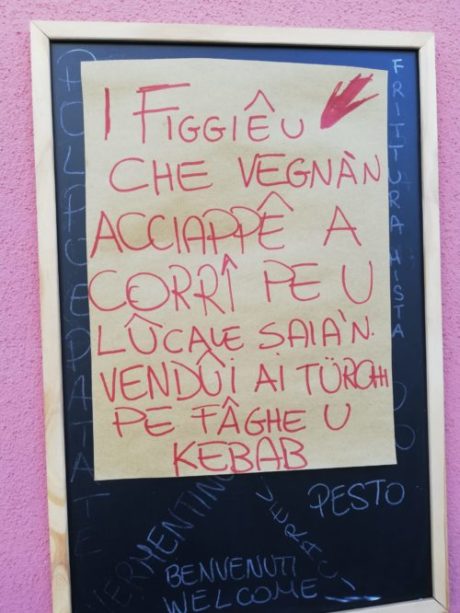 I FIGGIÊU
CHE VEGNÀN
ACCIAPPÊ A
CORRÎ PE U
LÛCALE SAIÀN
VENDÛI AI TÜRCHI
PE FÂGHE U
KEBAB
POLPO E PATATE
FRITTURA MISTA
VERMENTINO
PESTO
BENVENUTI
WELCOME